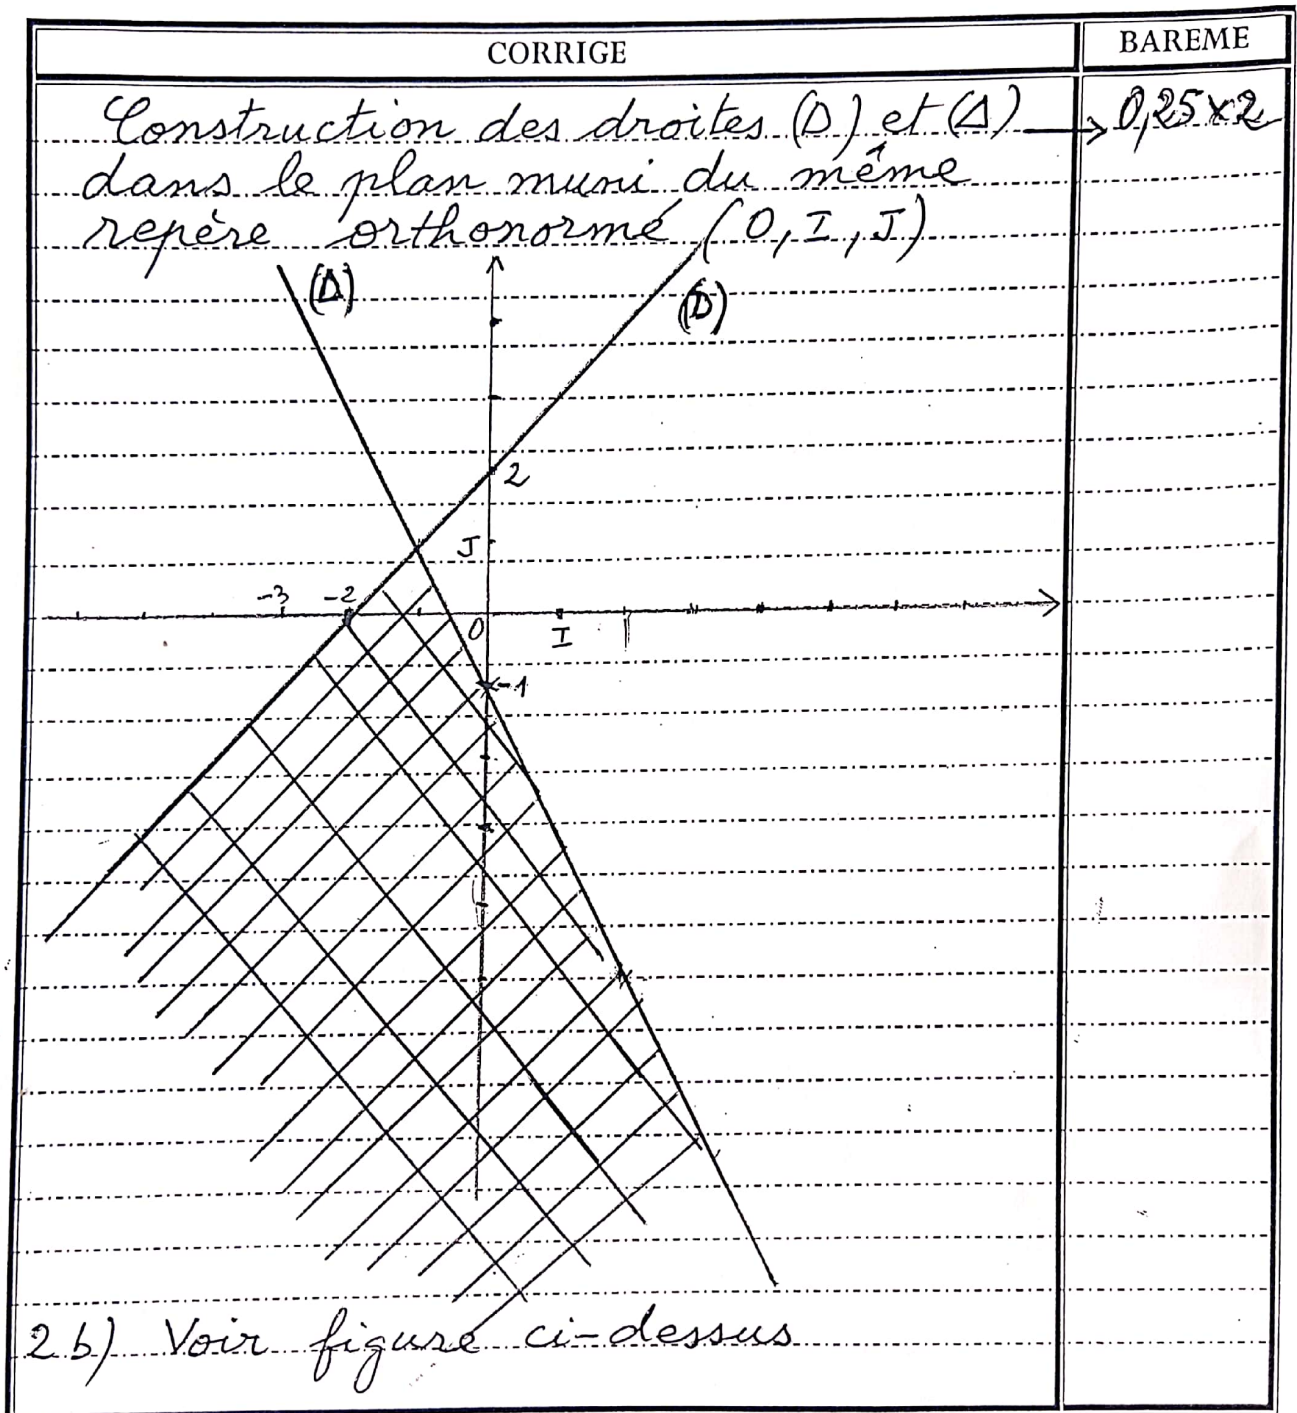 CORRIGE
BAREME
Construction des droites (D) et (Δ) → 0,25x2
dans le plan muni du même
repère orthonormé (O, I, J)
(Δ)
(D)
2
J
-3 -2
O
I
-1
2.b) Voir figure ci-dessus